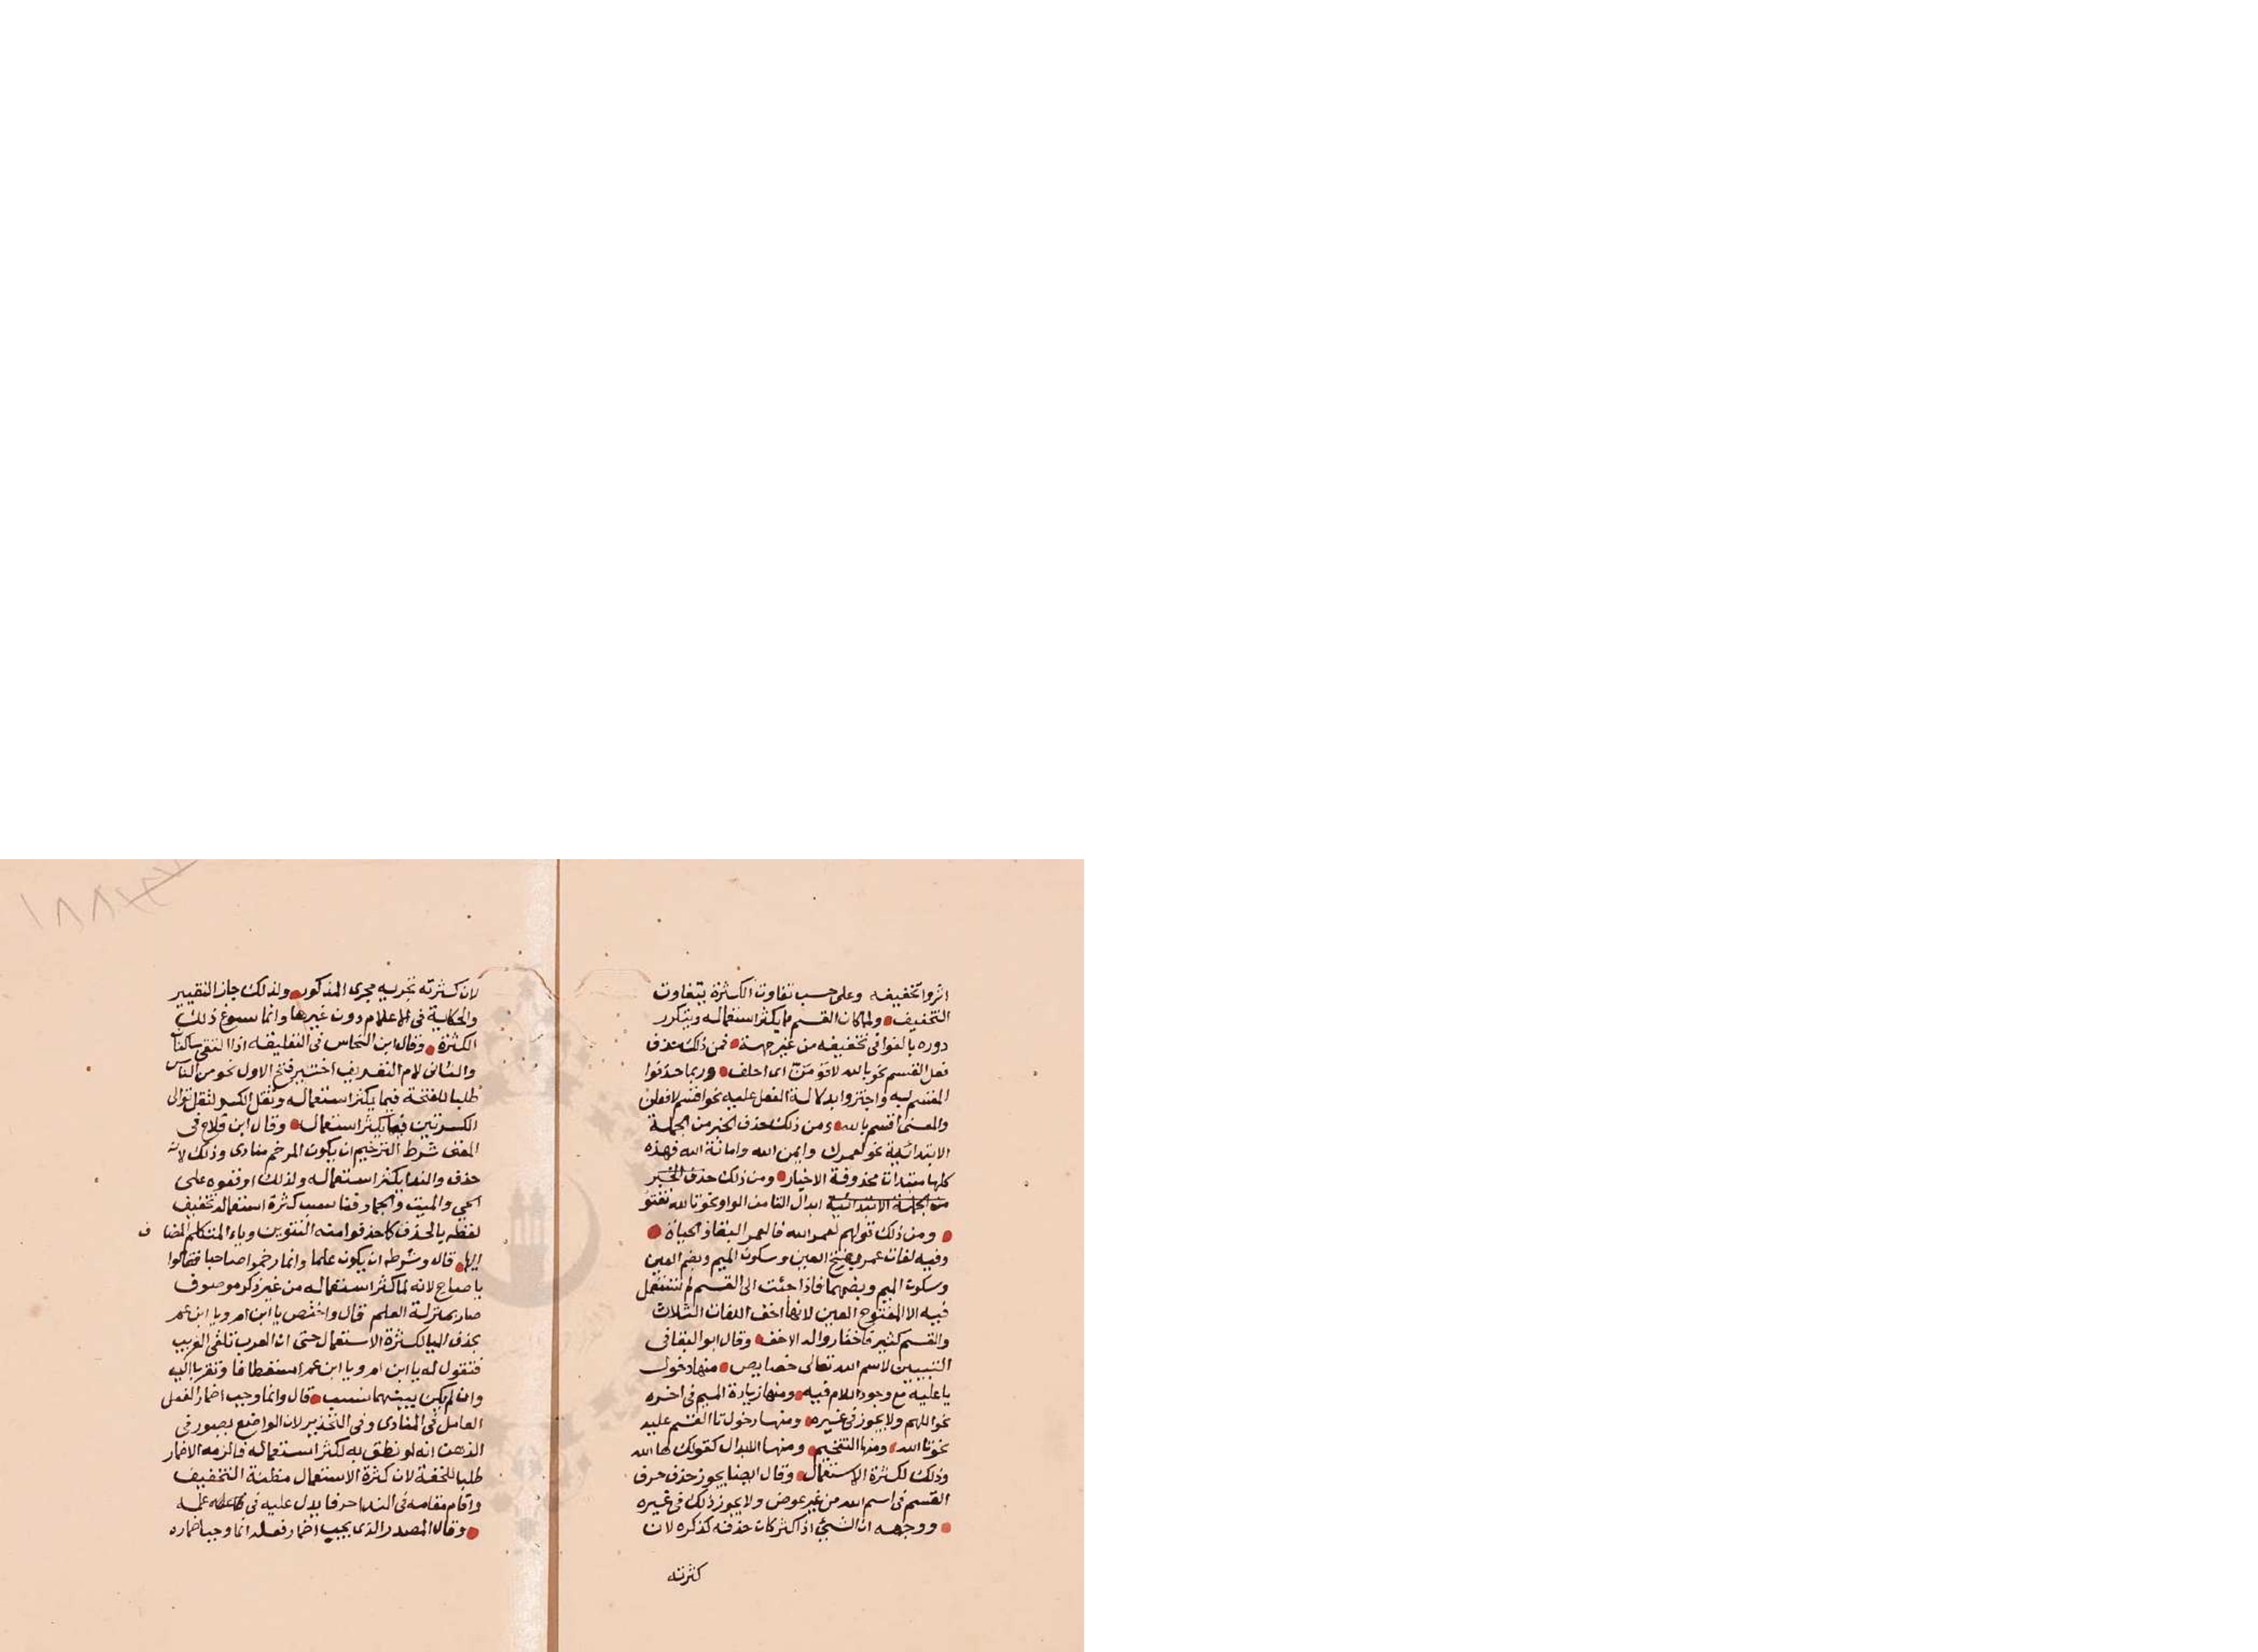 اثروا تخفيفه وعلى حسب تفاوت الكثرة يتفاوت
التخفيف ولما كان القسم مما يكثر استعماله ويتكرر
دوره بالغوا في تخفيفه من غير جهة فمن ذلك حذف
فعل القسم نحو بالله لاقومن اى احلف وربما حذفوا
المقسم به واجتزوا بدلالة الفعل عليه نحو اقسم لافعلن
والمعنى اقسم بالله ومن ذلك حذف الخبر من الجملة
الابتدائية نحو لعمرك وايمن الله وامانة الله فهذه
كلها مبتدات محذوفة الاخبار ومن ذلك حذف الخبر
من الجملة الابتدائية ابدال التا من الواو نحو تالله تفتؤ
ومن ذلك قولهم لعمر الله فالعمر البقا والحياة
وفيه لغات عمر بفتح العين وسكون الميم وبضم العين
وسكون الميم وبضمهما فاذا جئت الى القسم لم تستعمل
فيه الا المفتوح العين لانها اخف اللغات الثلاث
والقسم كثير فاختاروا له الاخف وقال ابو البقا فى
التبيين لاسم الله تعالى خصايص منها دخول
يا عليه مع وجود اللام فيه ومنها زيادة الميم فى اخره
نحو اللهم ولا يجوز فى غيره ومنها دخول تا القسم عليه
نحو تالله ومنها التفخيم ومنها الابدال كقولك ها الله
وذلك لكثرة الاستعمال وقال ايضا يجوز حذف حرف
القسم فى اسم الله من غير عوض ولا يجوز ذلك فى غيره
ووجهه ان الشئ اذا كثر كان حذفه كذكره لان
كثرته
لان كثرته تجريه مجرى المذكور ولذلك جاز التغيير
والحكاية فى الاعلام دون غيرها وانما سوغ ذلك
الكثرة وقال ابن النحاس فى التعليقه اذا التقى ساكنان
والثانى لام التعريف اختير فتح الاول نحو من الناس
طلبا للفتحة فيما يكثر استعماله وثقل الكسر لثقل توالى
الكسرتين فيما يكثر استعماله وقال ابن فلاح فى
المغنى شرط الترخيم ان يكون المرخم منادى وذلك لانه
حذف والندا يكثر استعماله ولذلك اوقعوه على
الحي والميت والجماد فناسب كثرة استعماله تخفيف
لفظه بالحذف كما حذفوا منه التنوين وياء المتكلم المضاف
اليها قال وشرطه ان يكون علما وانما رخموا صاحبا فقالوا
يا صاح لانه لما كثر استعماله من غير ذكر موصوف
صار بمنزلة العلم قال واختص يا ابن ام ويا ابن عم
بحذف اليا لكثرة الاستعمال حتى ان العرب تلقى الغريب
فتقول له يا ابن ام ويا ابن عم استعطافا وتقربا اليه
وان لم يكن بينهما نسب قال وانما وجب اضمار الفعل
العامل فى المنادى وفى التحذير لان الواضع تصور فى
الذهن انه لو نطق به لكثر استعماله فالزمه الاضمار
طلبا للخفة لان كثرة الاستعمال مظنة التخفيف
واقام مقامه فى الندا حرفا يدل عليه فى محله عمله
وقال المصدر الذى يجب اضمار فعله انما وجب اضماره